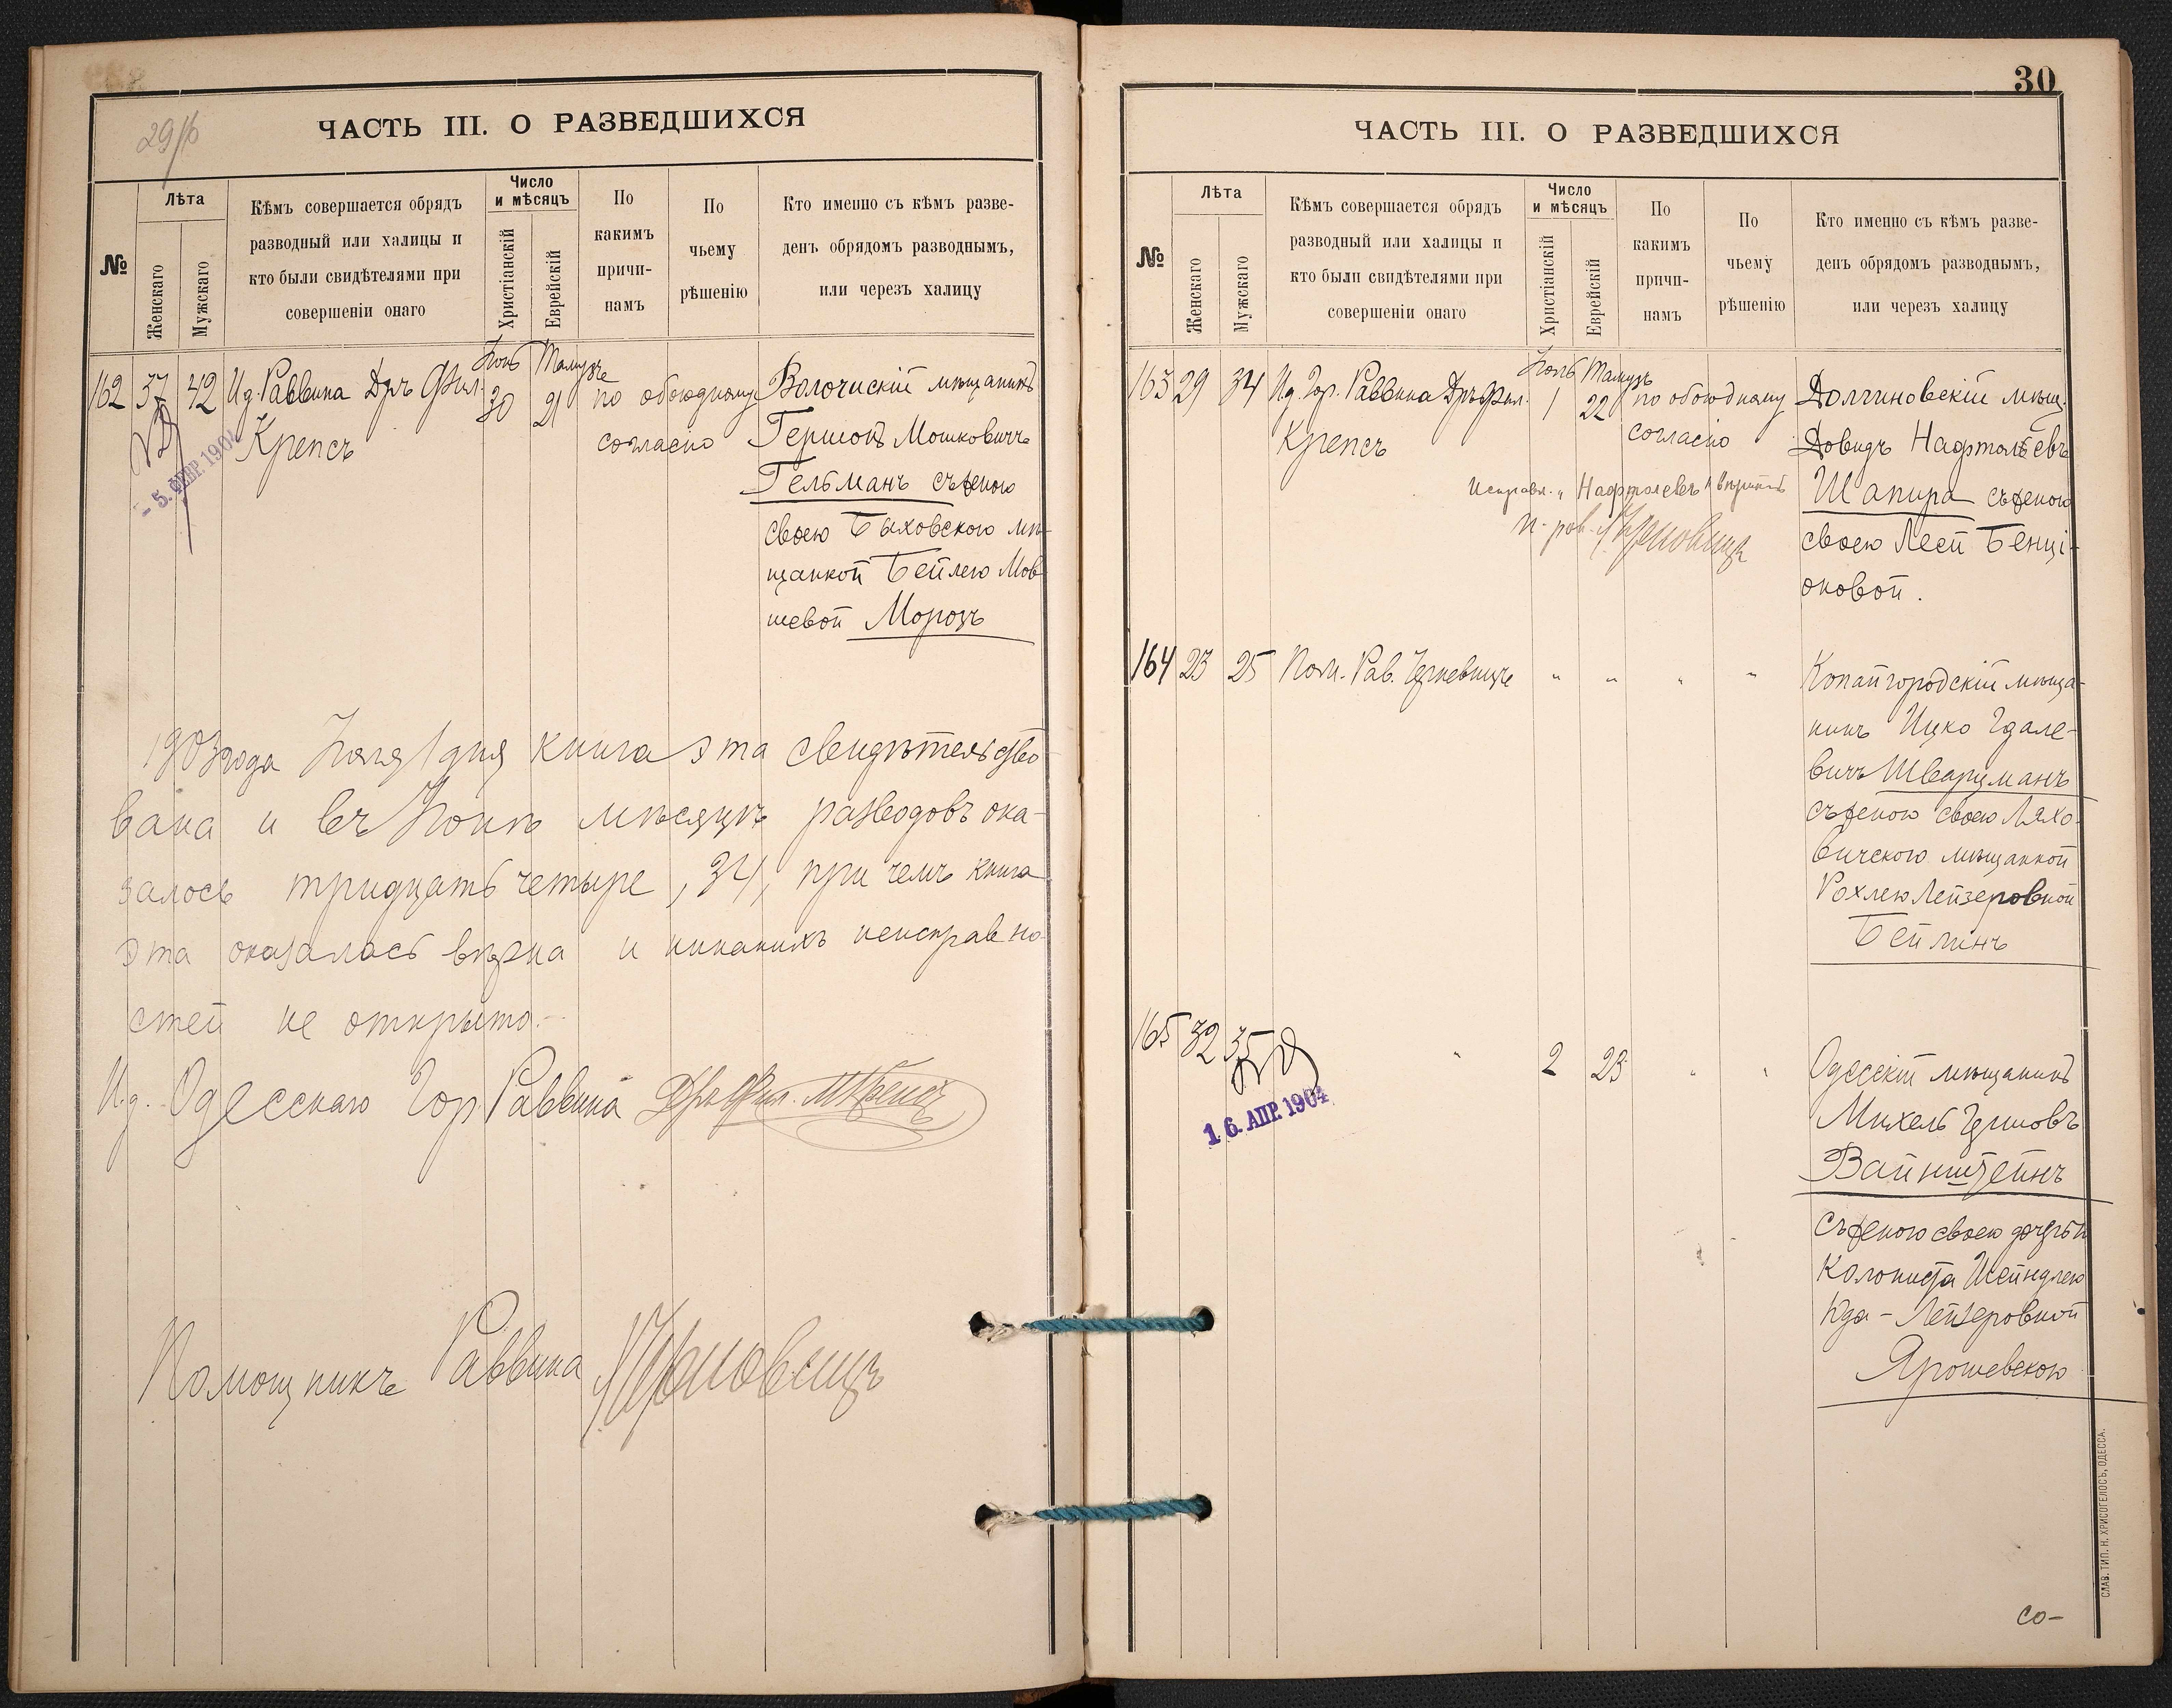 29/об
ЧАСТЬ III. О РАЗВЕДШИХСЯ
№
Лѣта
Женскаго
Мужскаго
Кѣмъ совершается обрядъ
разводный или халицы и
кто были свидѣтелями при
совершеніи онаго
Число
и мѣсяцъ
Христіанскій
Еврейскій
По
какимъ
причи-
намъ
По
чьему
рѣшенію
Кто именно съ кѣмъ разве-
денъ обрядомъ разводнымъ,
или черезъ халицу
162 37 42 Ид. Раввина Дръ Фил.
Крепсъ
- 5. ФЕВР. 1904
Іюнь
30
Тамузъ
21
по обоюдному
согласію
Волочискій мѣщанинъ
Гершонъ Мошковичъ
Гельманъ съ женою
своею Быховскою мѣ-
щанкой Бейлею Мов-
шевой Морозъ
1903 года Іюля 1 дня книга эта свидѣтельство-
вана и въ Іюнѣ мѣсяцѣ разводовъ ока-
залось тридцать четыре, 34, при чемъ книга
эта оказалась вѣрна и никакихъ неисправно-
стей не открыто.-
И.д. Одесскаго Гор. Раввина Дръ Фил. М Крепсъ
Помощникъ Раввина
30
ЧАСТЬ III. О РАЗВЕДШИХСЯ
№
Лѣта
Женскаго
Мужскаго
Кѣмъ совершается обрядъ
разводный или халицы и
кто были свидѣтелями при
совершеніи онаго
Число
и мѣсяцъ
Христіанскій
Еврейскій
По
какимъ
причи-
намъ
По
чьему
рѣшенію
Кто именно съ кѣмъ разве-
денъ обрядомъ разводнымъ,
или черезъ халицу
163 29 34 Ид. Гор. Раввина Дръ Фил.
Крепсъ
Іюль
1
Тамузъ
22
по обоюдному
согласію
Исправл. „Нафталевъ" вѣрить
П. рав.
Долгиновскій мѣщ.
Довидъ Нафталевъ
Шапира съ женою
своею Лееи Бенці-
оновой.
164 23 25 Пом. Рав. " " " "
Копайгородскій мѣща-
нинъ Ицко Гдале-
вичъ Шварцманъ
съ женою своею Ляхо-
вичскою мѣщанкой
Рохлею Лейзеровной
Бейлинъ
165 32 35 " 2 23 " "
16. АПР. 1904
Одесскій мѣщанинъ
Михель Гершовъ
Вайнштейнъ
съ женою своею дочерью
колониста Шейндлею
Идо-Лейзеровной
Ярошевскою
СЛАВ. ТИП. Н. ХРИСОГЕЛОСЪ, ОДЕССА.
со-